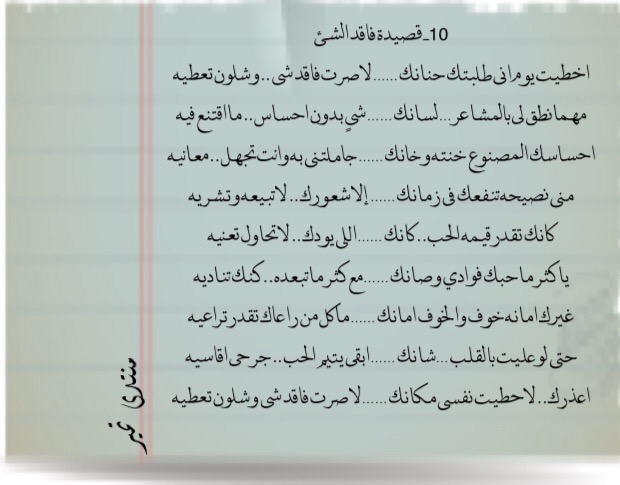 10ـ قصيدة فاقد الشئ
اخطيت يوم انى طلبتك حنانك......لا صرت فاقد شى..وشلون تعطيه
مهما نطق لى بالمشاعر...لسانك......شيٍ بدون احساس..ما اقتنع فيه
احساسك المصنوع خنته وخانك......جاملتنى به وانت تجهل..معانيه
منى نصيحه تنفعك فى زمانك......إلا شعورك..لا تبيعه وتشريه
كانك تقدر قيمه الحب..كانك......اللى يودك..لا تحاول تعنيه
ياكثر ما حبك فوادي وصانك......مع كثر ما تبعده..كنك تناديه
غيرك امانه خوف والخوف امانك......ماكل من راعاك تقدر تراعيه
حتى لو عليت بالقلب...شانك......ابقى يتيم الحب..جرحى اقاسيه
اعذرك..لا حطيت نفسى مكانك......لا صرت فاقد شى وشلون تعطيه
منتدى عبر